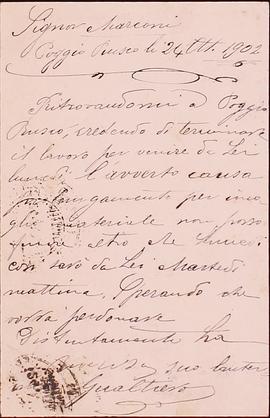 Signor Marconi
Poggio Rusco li 24 Ott. 1902
Ritrovandomi a Poggio
Rusco, credendo di terminare
il lavoro per venire da Lei
lunedì l'avverto causa
per
materiale non posso
finire altro che lunedì
così sarò da Lei Martedì
mattina. Sperando che
vorrà perdonare
Distintamente la
suo
Gualtiero